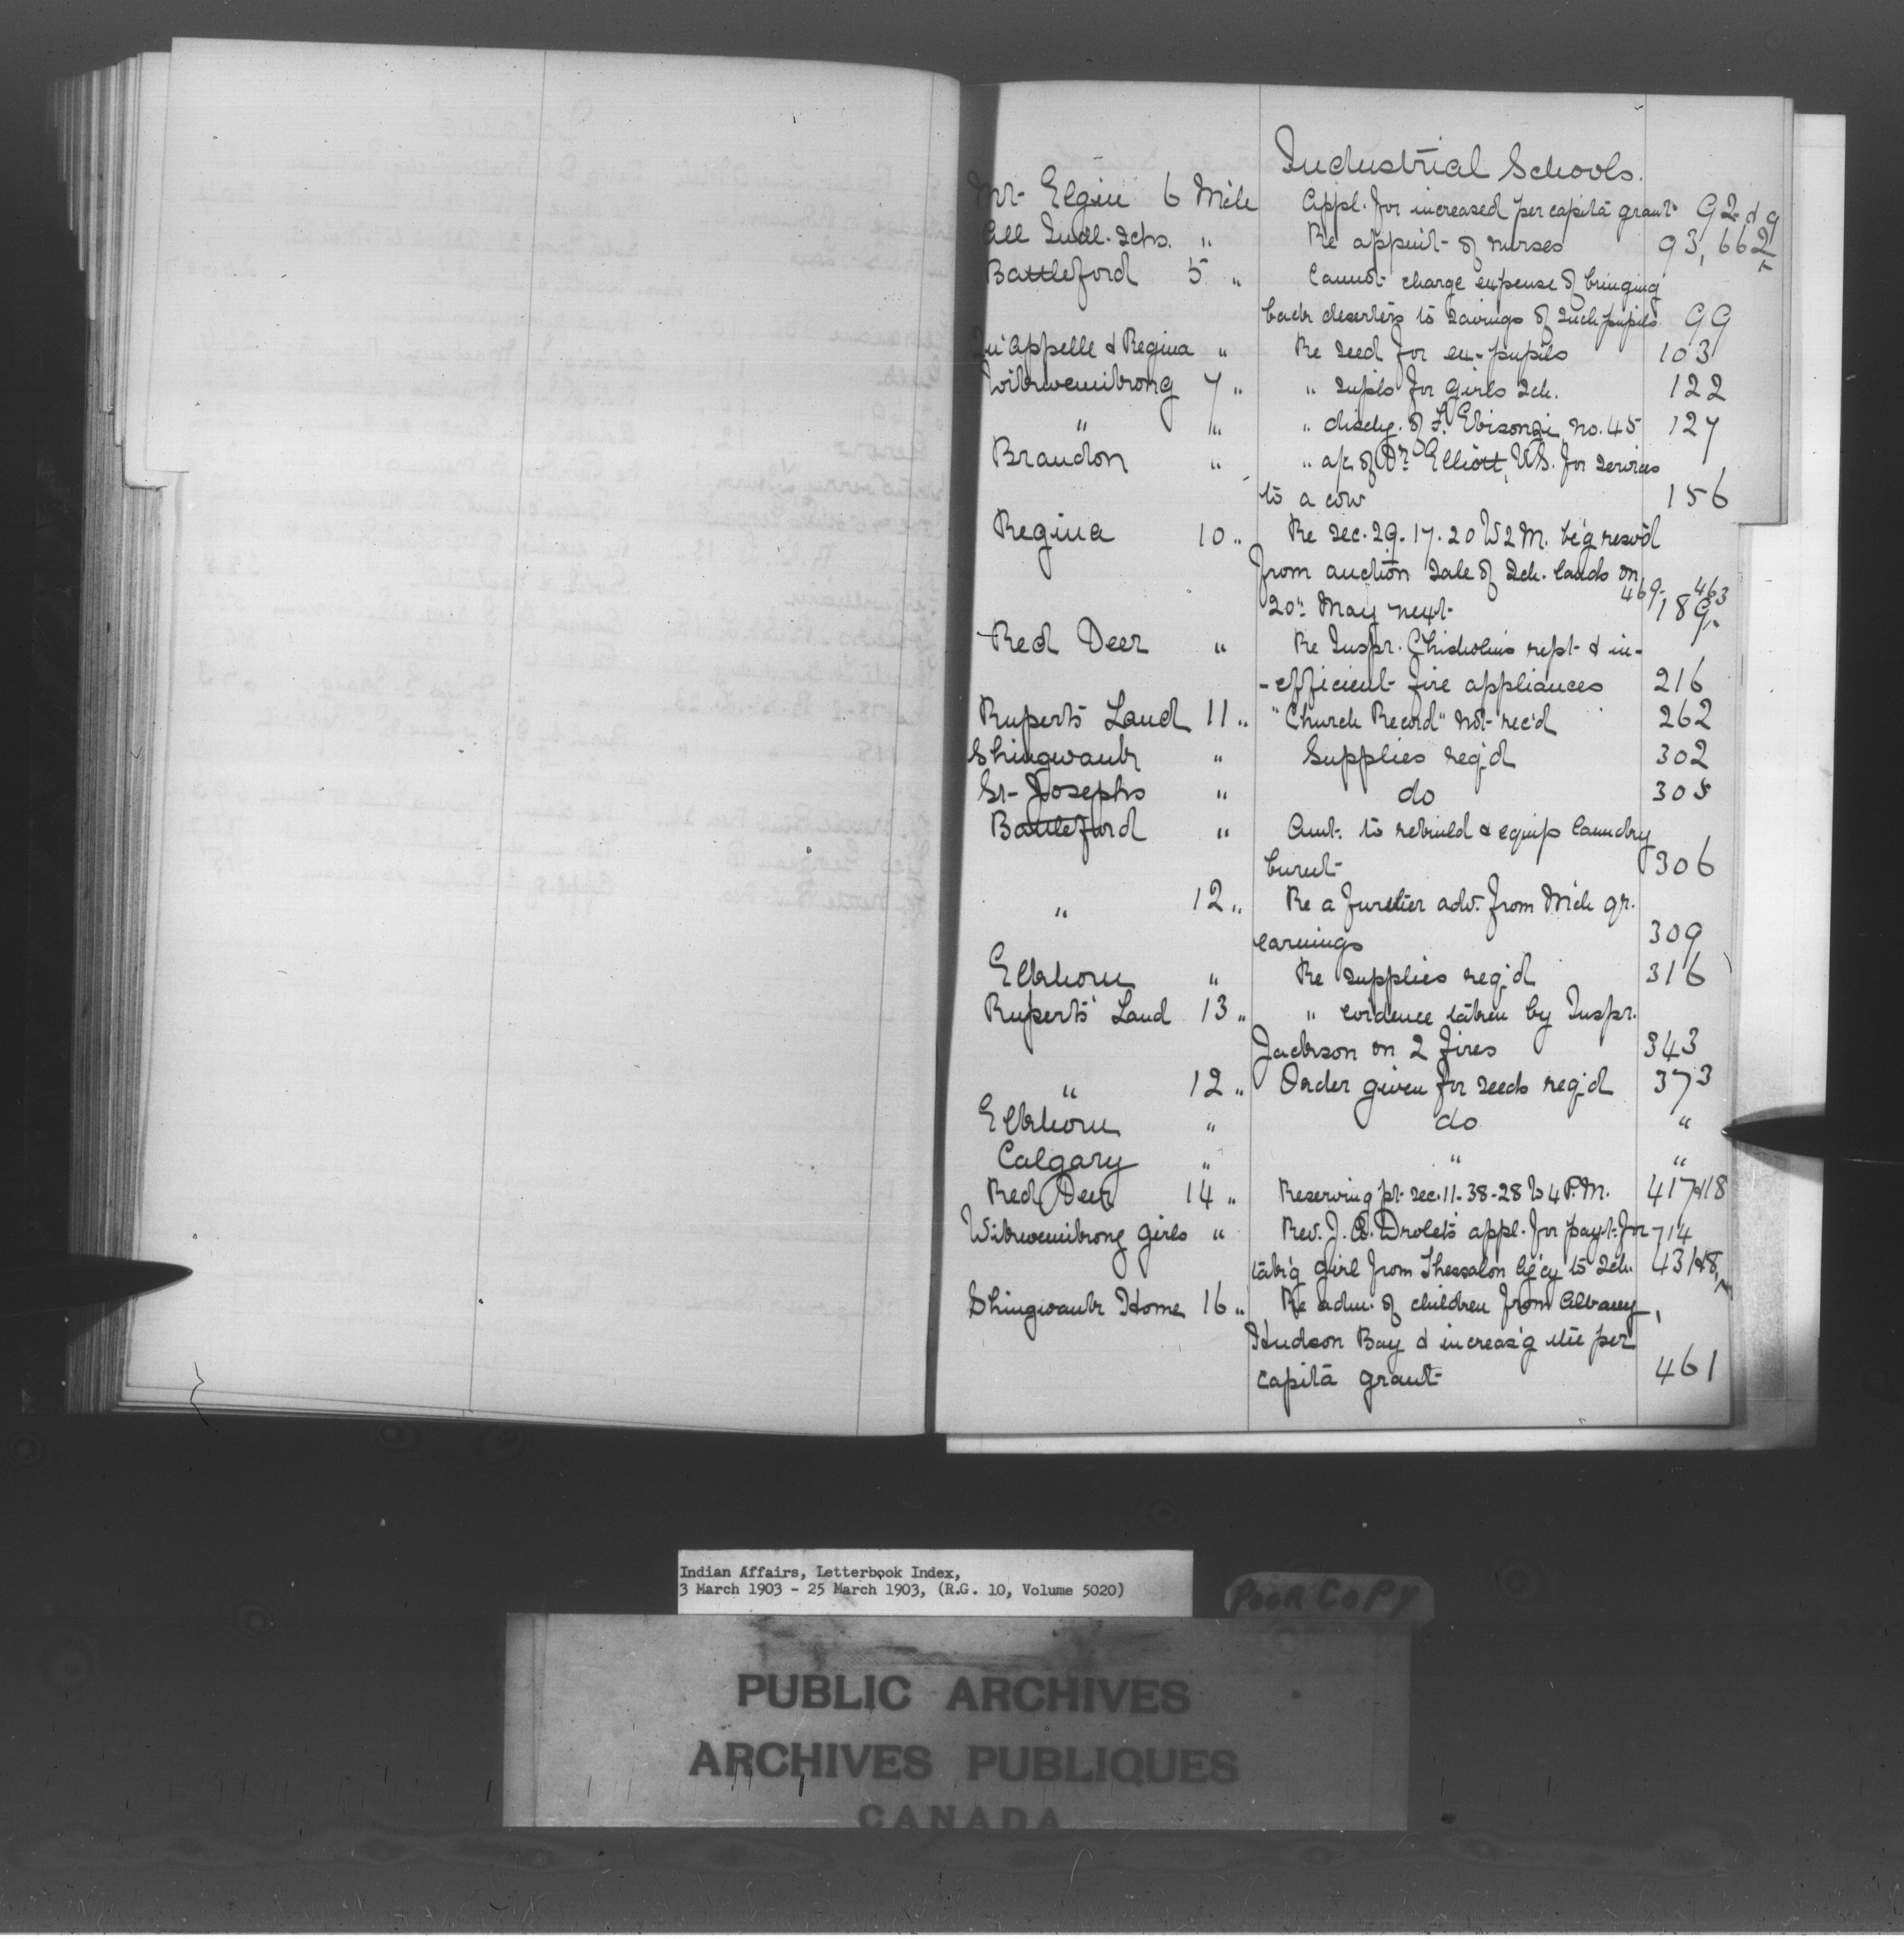 Industrial Schools.
Mt. Elgin 6 Mch Appl. for increased per capita grant 92 d 9
All Indl. Schs. " Re appmt. of nurses 93, 662
Battleford 5 " Cannot charge expense of bringing
back deserters to savings of such pupils 99
Qu'Appelle & Regina " Re seed for ex-pupils 103
Wikwemikong 7 " " supls for girls Sch. 122
" " " dischg. of F. Ebisonzi, no. 45 127
Brandon " " a/c of Dr. Elliott, V.S. for services
to a cow 156
Regina 10 " Re Sec. 29-17-20 W2M. be'g resv'd
from auction sale of Sch. lands on
20th May next 469, 463 189,
Red Deer " Re Inspr. Chisholm's rept. & in-
-efficient fire appliances 216
Ruperts Land 11 " "Church Record" not rec'd 262
Shingwauk " Supplies req'd 302
St. Josephs " do 305
Battleford " Amt. to rebuild & equip laundry
burnt 306
" 12 " Re a further adv. from Mch qr.
earnings 309
Elkhorn " Re supplies req'd 316
Ruperts' Land 13 " " evidence taken by Inspr.
Jackson on 2 fires 343
" 12 " Order given for seeds req'd 373
Elkhorn " do "
Calgary " " "
Red Deer 14 " Reserving pt. sec. 11-38-28 W4P.M. 417&18
Wikwemikong girls " Rev. J. B. Drolet's appl. for payt. for 714
tak'g girl from Thessalon Ag'cy to Sch. 431&8,
Shingwauk Home 16 " Re adm. of children from Albany,
Hudson Bay & increas'g the per
capita grant 461
Indian Affairs, Letterbook Index,
3 March 1903 - 25 March 1903, (R.G. 10, Volume 5020)
POOR COPY
PUBLIC ARCHIVES
ARCHIVES PUBLIQUES
CANADA